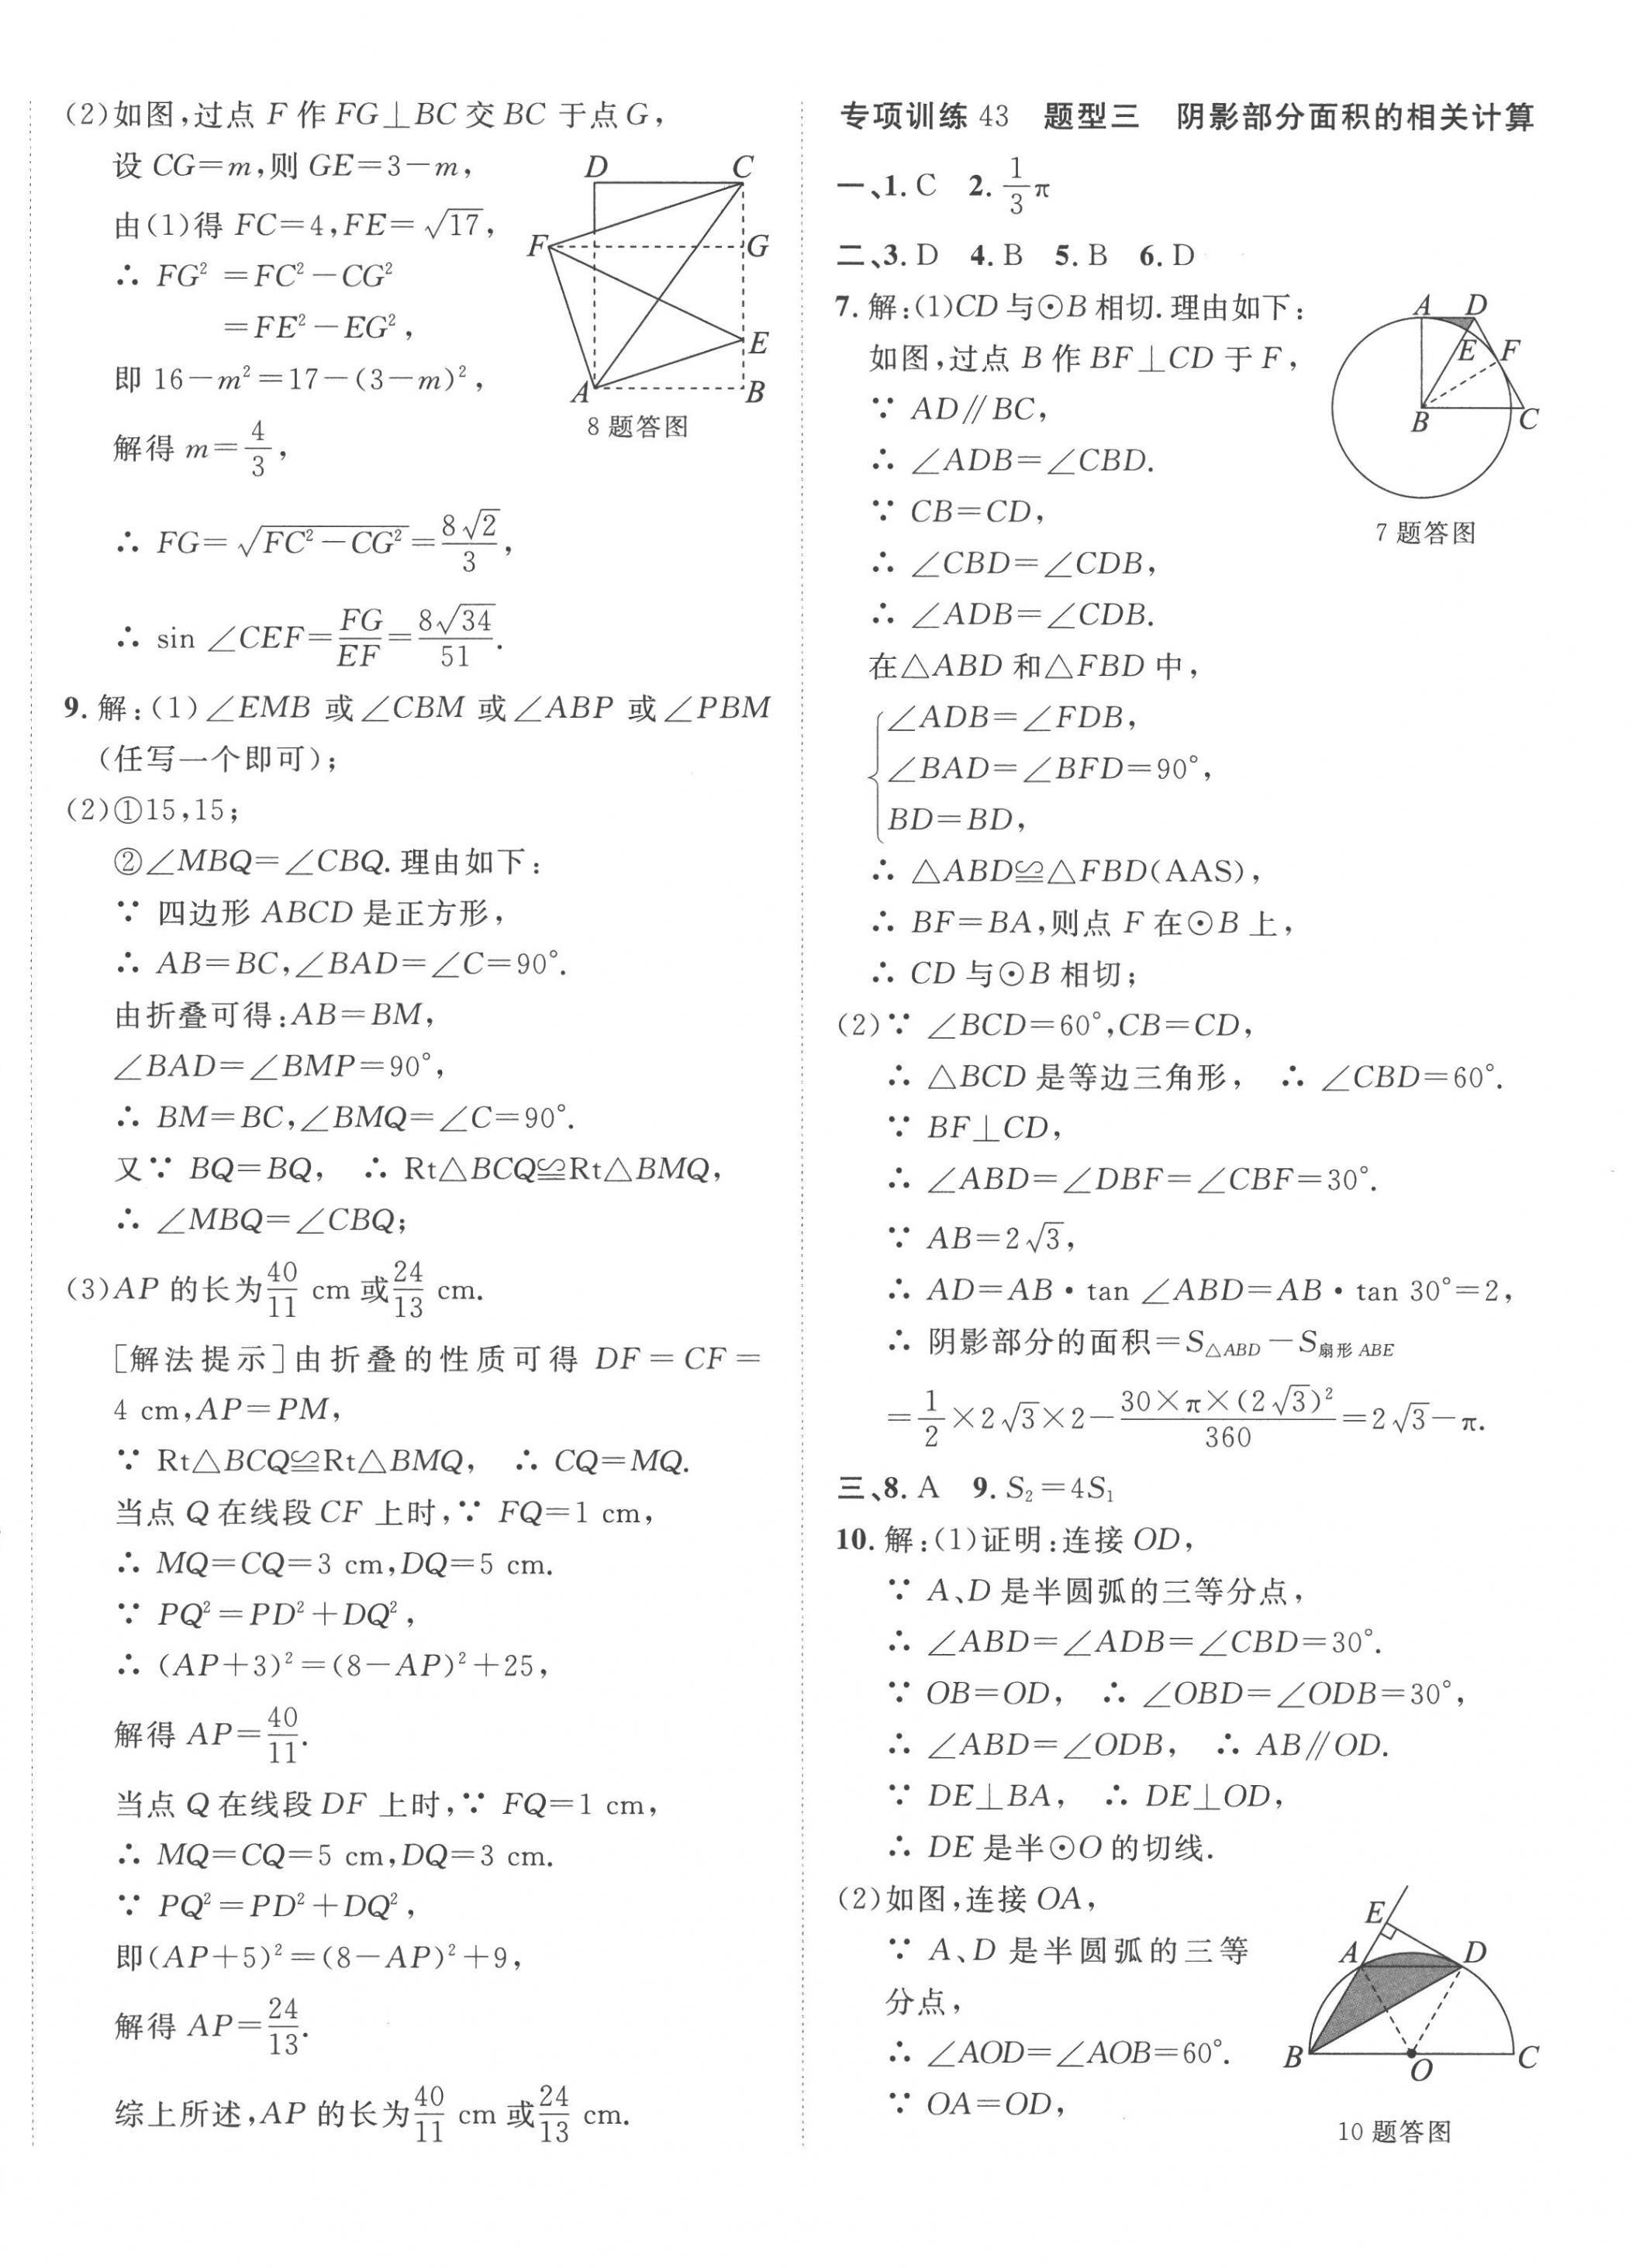 (2)如图,过点 F 作 FG⊥BC 交 BC 于点G,
设 CG=m,则 GE=3-m,
由(1)得 FC=4,FE=√17,
∴ FG²=FC²-CG²
=FE²-EG²,
即 16-m²=17-(3-m)²,
解得 m=4/3,
∴ FG=√(FC²-CG²)=8√2/3,
∴ sin ∠CEF=FG/EF=8√34/51.
D C
F G
E
A B
8 题答图
9. 解:(1)∠EMB 或∠CBM 或∠ABP 或∠PBM
(任写一个即可);
(2)①15,15;
②∠MBQ=∠CBQ.理由如下:
∵ 四边形 ABCD 是正方形,
∴ AB=BC,∠BAD=∠C=90°.
由折叠可得:AB=BM,
∠BAD=∠BMP=90°,
∴ BM=BC,∠BMQ=∠C=90°.
又∵ BQ=BQ, ∴ Rt△BCQ≌Rt△BMQ,
∴ ∠MBQ=∠CBQ;
(3)AP 的长为40/11 cm 或24/13 cm.
[解法提示]由折叠的性质可得 DF=CF=
4 cm,AP=PM,
∵ Rt△BCQ≌Rt△BMQ, ∴ CQ=MQ.
当点 Q 在线段 CF 上时,∵ FQ=1 cm,
∴ MQ=CQ=3 cm,DQ=5 cm.
∵ PQ²=PD²+DQ²,
∴ (AP+3)²=(8-AP)²+25,
解得 AP=40/11.
当点 Q 在线段 DF 上时,∵ FQ=1 cm,
∴ MQ=CQ=5 cm,DQ=3 cm.
∵ PQ²=PD²+DQ²,
即(AP+5)²=(8-AP)²+9,
解得 AP=24/13.
综上所述,AP 的长为40/11 cm 或24/13 cm.
专项训练 43 题型三 阴影部分面积的相关计算
一、1. C 2. 1/3π
二、3. D 4. B 5. B 6. D
7. 解:(1)CD 与⊙B 相切.理由如下:
如图,过点 B 作 BF⊥CD 于 F,
∵ AD∥BC,
∴ ∠ADB=∠CBD.
∵ CB=CD,
∴ ∠CBD=∠CDB,
∴ ∠ADB=∠CDB.
A D
E F
B C
7 题答图
在△ABD 和△FBD 中,
{∠ADB=∠FDB,
∠BAD=∠BFD=90°,
BD=BD,
∴ △ABD≌△FBD(AAS),
∴ BF=BA,则点 F 在⊙B 上,
∴ CD 与⊙B 相切;
(2)∵ ∠BCD=60°,CB=CD,
∴ △BCD 是等边三角形, ∴ ∠CBD=60°.
∵ BF⊥CD,
∴ ∠ABD=∠DBF=∠CBF=30°.
∵ AB=2√3,
∴ AD=AB·tan ∠ABD=AB·tan 30°=2,
∴ 阴影部分的面积=S△ABD-S扇形 ABE
=1/2×2√3×2-30×π×(2√3)²/360=2√3-π.
三、8. A 9. S₂=4S₁
10. 解:(1)证明:连接 OD,
∵ A、D 是半圆弧的三等分点,
∴ ∠ABD=∠ADB=∠CBD=30°.
∵ OB=OD, ∴ ∠OBD=∠ODB=30°,
∴ ∠ABD=∠ODB, ∴ AB∥OD.
∵ DE⊥BA, ∴ DE⊥OD,
∴ DE 是半⊙O 的切线.
(2)如图,连接 OA,
∵ A、D 是半圆弧的三等
分点,
∴ ∠AOD=∠AOB=60°.
∵ OA=OD,
E
A D
B O C
10 题答图